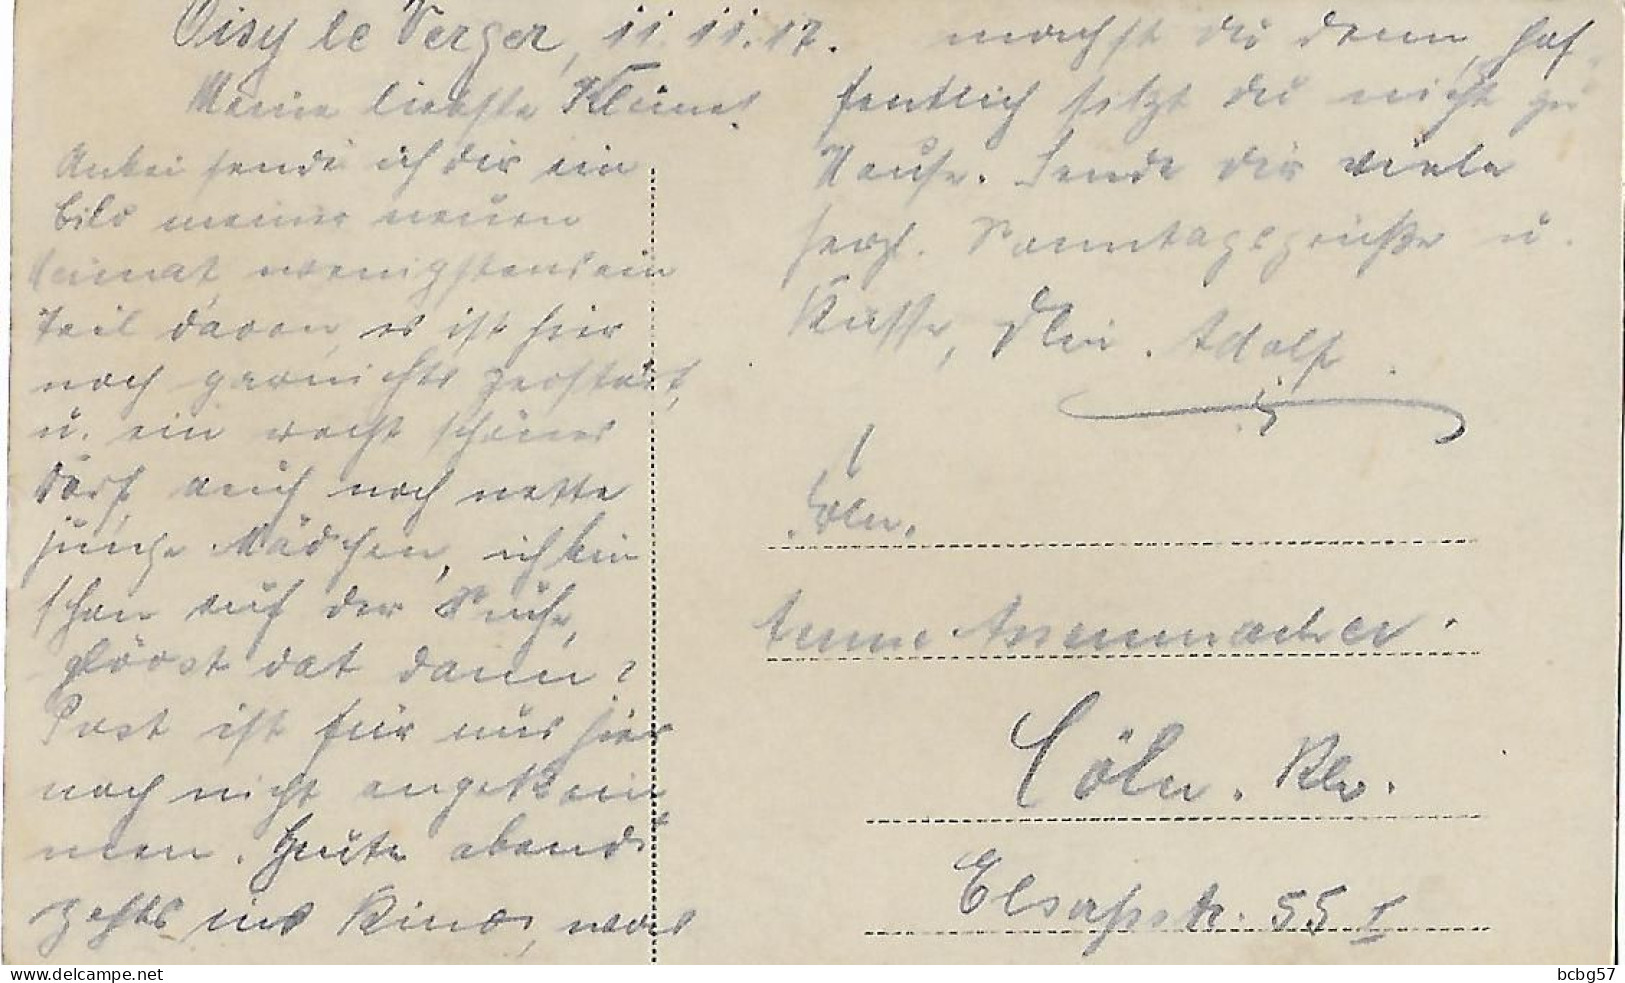 Oisy le Verger, 11.11.17.
Meine liebste Kleine!
Anbei sende ich dir ein
Bild meiner neuen
Heimat, wenigstens ein
Teil davon, es ist hier
noch garnichts zerstört,
u. ein recht schönes
Dorf, auch noch nette
junge Mädchen, ich bin
schon auf der Suche,
glövst dat dann?
Post ist für uns hier
noch nicht angekom
men. Heute abend
gehts ins Kino, was
machst du denn, hof-
fentlich sitzt du nicht zu
Hause. Sende dir viele
herzl. Sonntagsgrüße u.
Küsse, Dein Adolf.
Cöln.
Anna Assenmacher.
Cöln. Rh.
Elsaßstr. 55 I
bcbg57